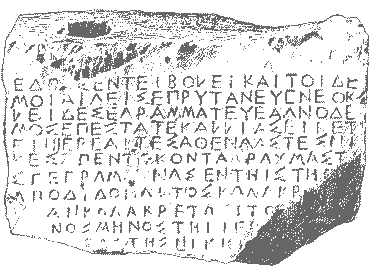 ΕΔΟΧΣΕΝΤΕΙΒΟΛΕΙΚΑΙΤΟΙΔΕ
ΜΟΙΑΙΓΕΙΣΕΠΡΥΤΑΝΕΥΕΝΕΟΚ
ΛΕΙΔΕΣΕΓΡΑΜΜΑΤΕΥΕΑΓΝΟΔΕ
ΜΟΣΕΠΕΣΤΑΤΕΚΑΛΛΙΑΣΕΙΠΕΤ
ΕΙΗΙΕΡΕΑΙΤΕΣΑΘΕΝΑΑΣΤΕΣΝ
ΙΚΕΣΠΕΝΤΕΚΟΝΤΑΔΡΑΧΜΑΣΤ
ΑΣΓΕΓΡΑΜΜΕΝΑΣΕΝΤΗΙΣΤΗΛ
ΑΠΟΔΙΔΟΝΑΙΤΟΣΚΩΛΑΚΡ
ΚΩΛΑΚΡΕΤΟΥ
ΝΟΣΜΗΝΟΣΤΗΙΙΕΡ
ΤΗΣΝΙΚΗΣ